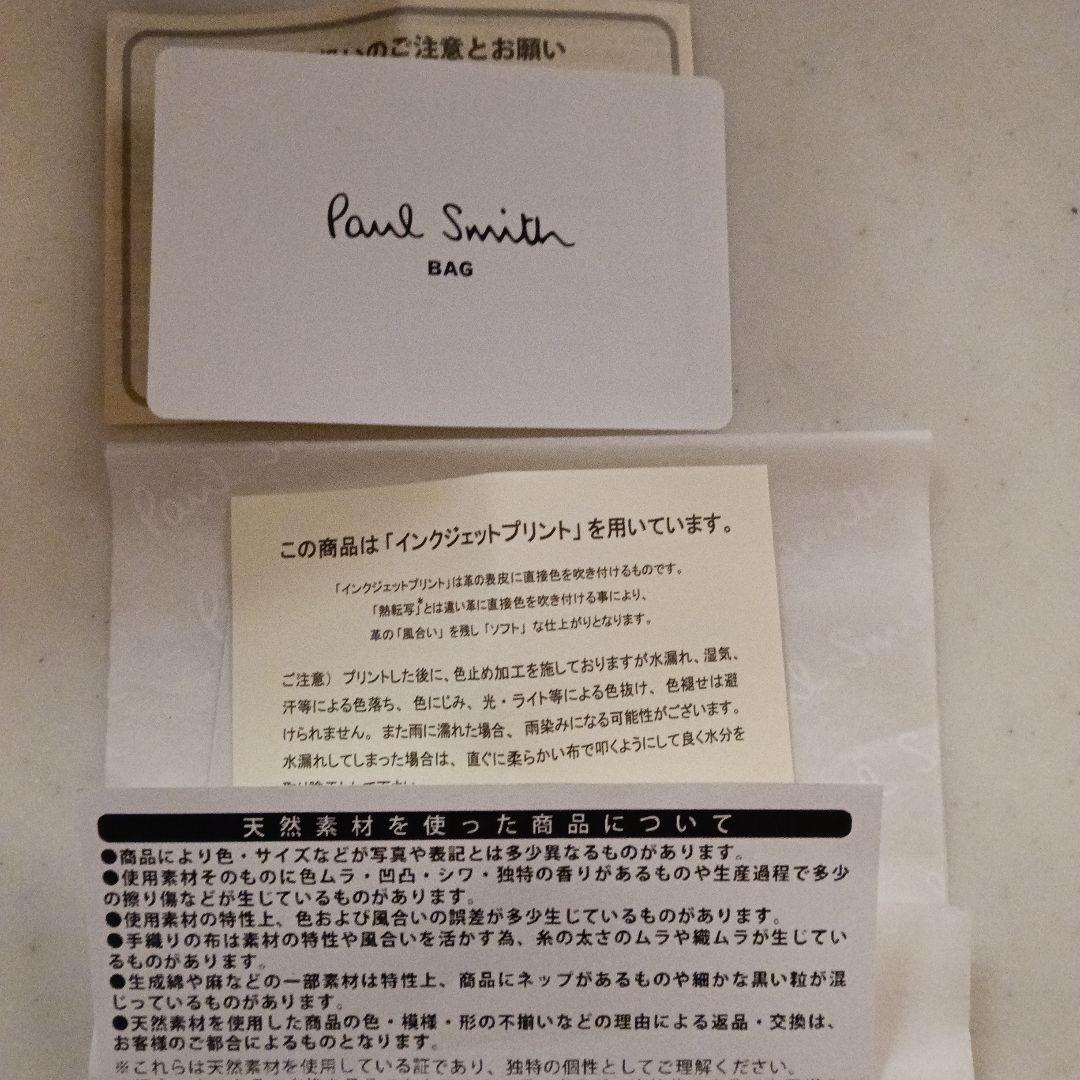 のご注意とお願い
Paul Smith
BAG
Paul
この商品は「インクジェットプリント」を用いています。
「インクジェットプリント」は革の表皮に直接色を吹き付けるものです。
「熱転写」*とは違い革に直接色を吹き付ける事により、
革の「風合い」を残し「ソフト」な仕上がりとなります。
ご注意） プリントした後に、色止め加工を施しておりますが水漏れ、湿気、
汗等による色落ち、色にじみ、光・ライト等による色抜け、色褪せは避
けられません。また雨に濡れた場合、雨染みになる可能性がございます。
水漏れしてしまった場合は、直ぐに柔らかい布で叩くようにして良く水分を
天然素材を使った商品について
●商品により色・サイズなどが写真や表記とは多少異なるものがあります。
●使用素材そのものに色ムラ・凹凸・シワ・独特の香りがあるものや生産過程で多少
の擦り傷などが生じているものがあります。
●使用素材の特性上、色および風合いの誤差が多少生じているものがあります。
●手織りの布は素材の特性や風合いを活かす為、糸の太さのムラや織ムラが生じてい
るものがあります。
●生成綿や麻などの一部素材は特性上、商品にネップがあるものや細かな黒い粒が混
じっているものがあります。
●天然素材を使用した商品の色・模様・形の不揃いなどの理由による返品・交換は、
お客様のご都合によるものとなります。
※これらは天然素材を使用している証であり、独特の個性としてご理解ください。